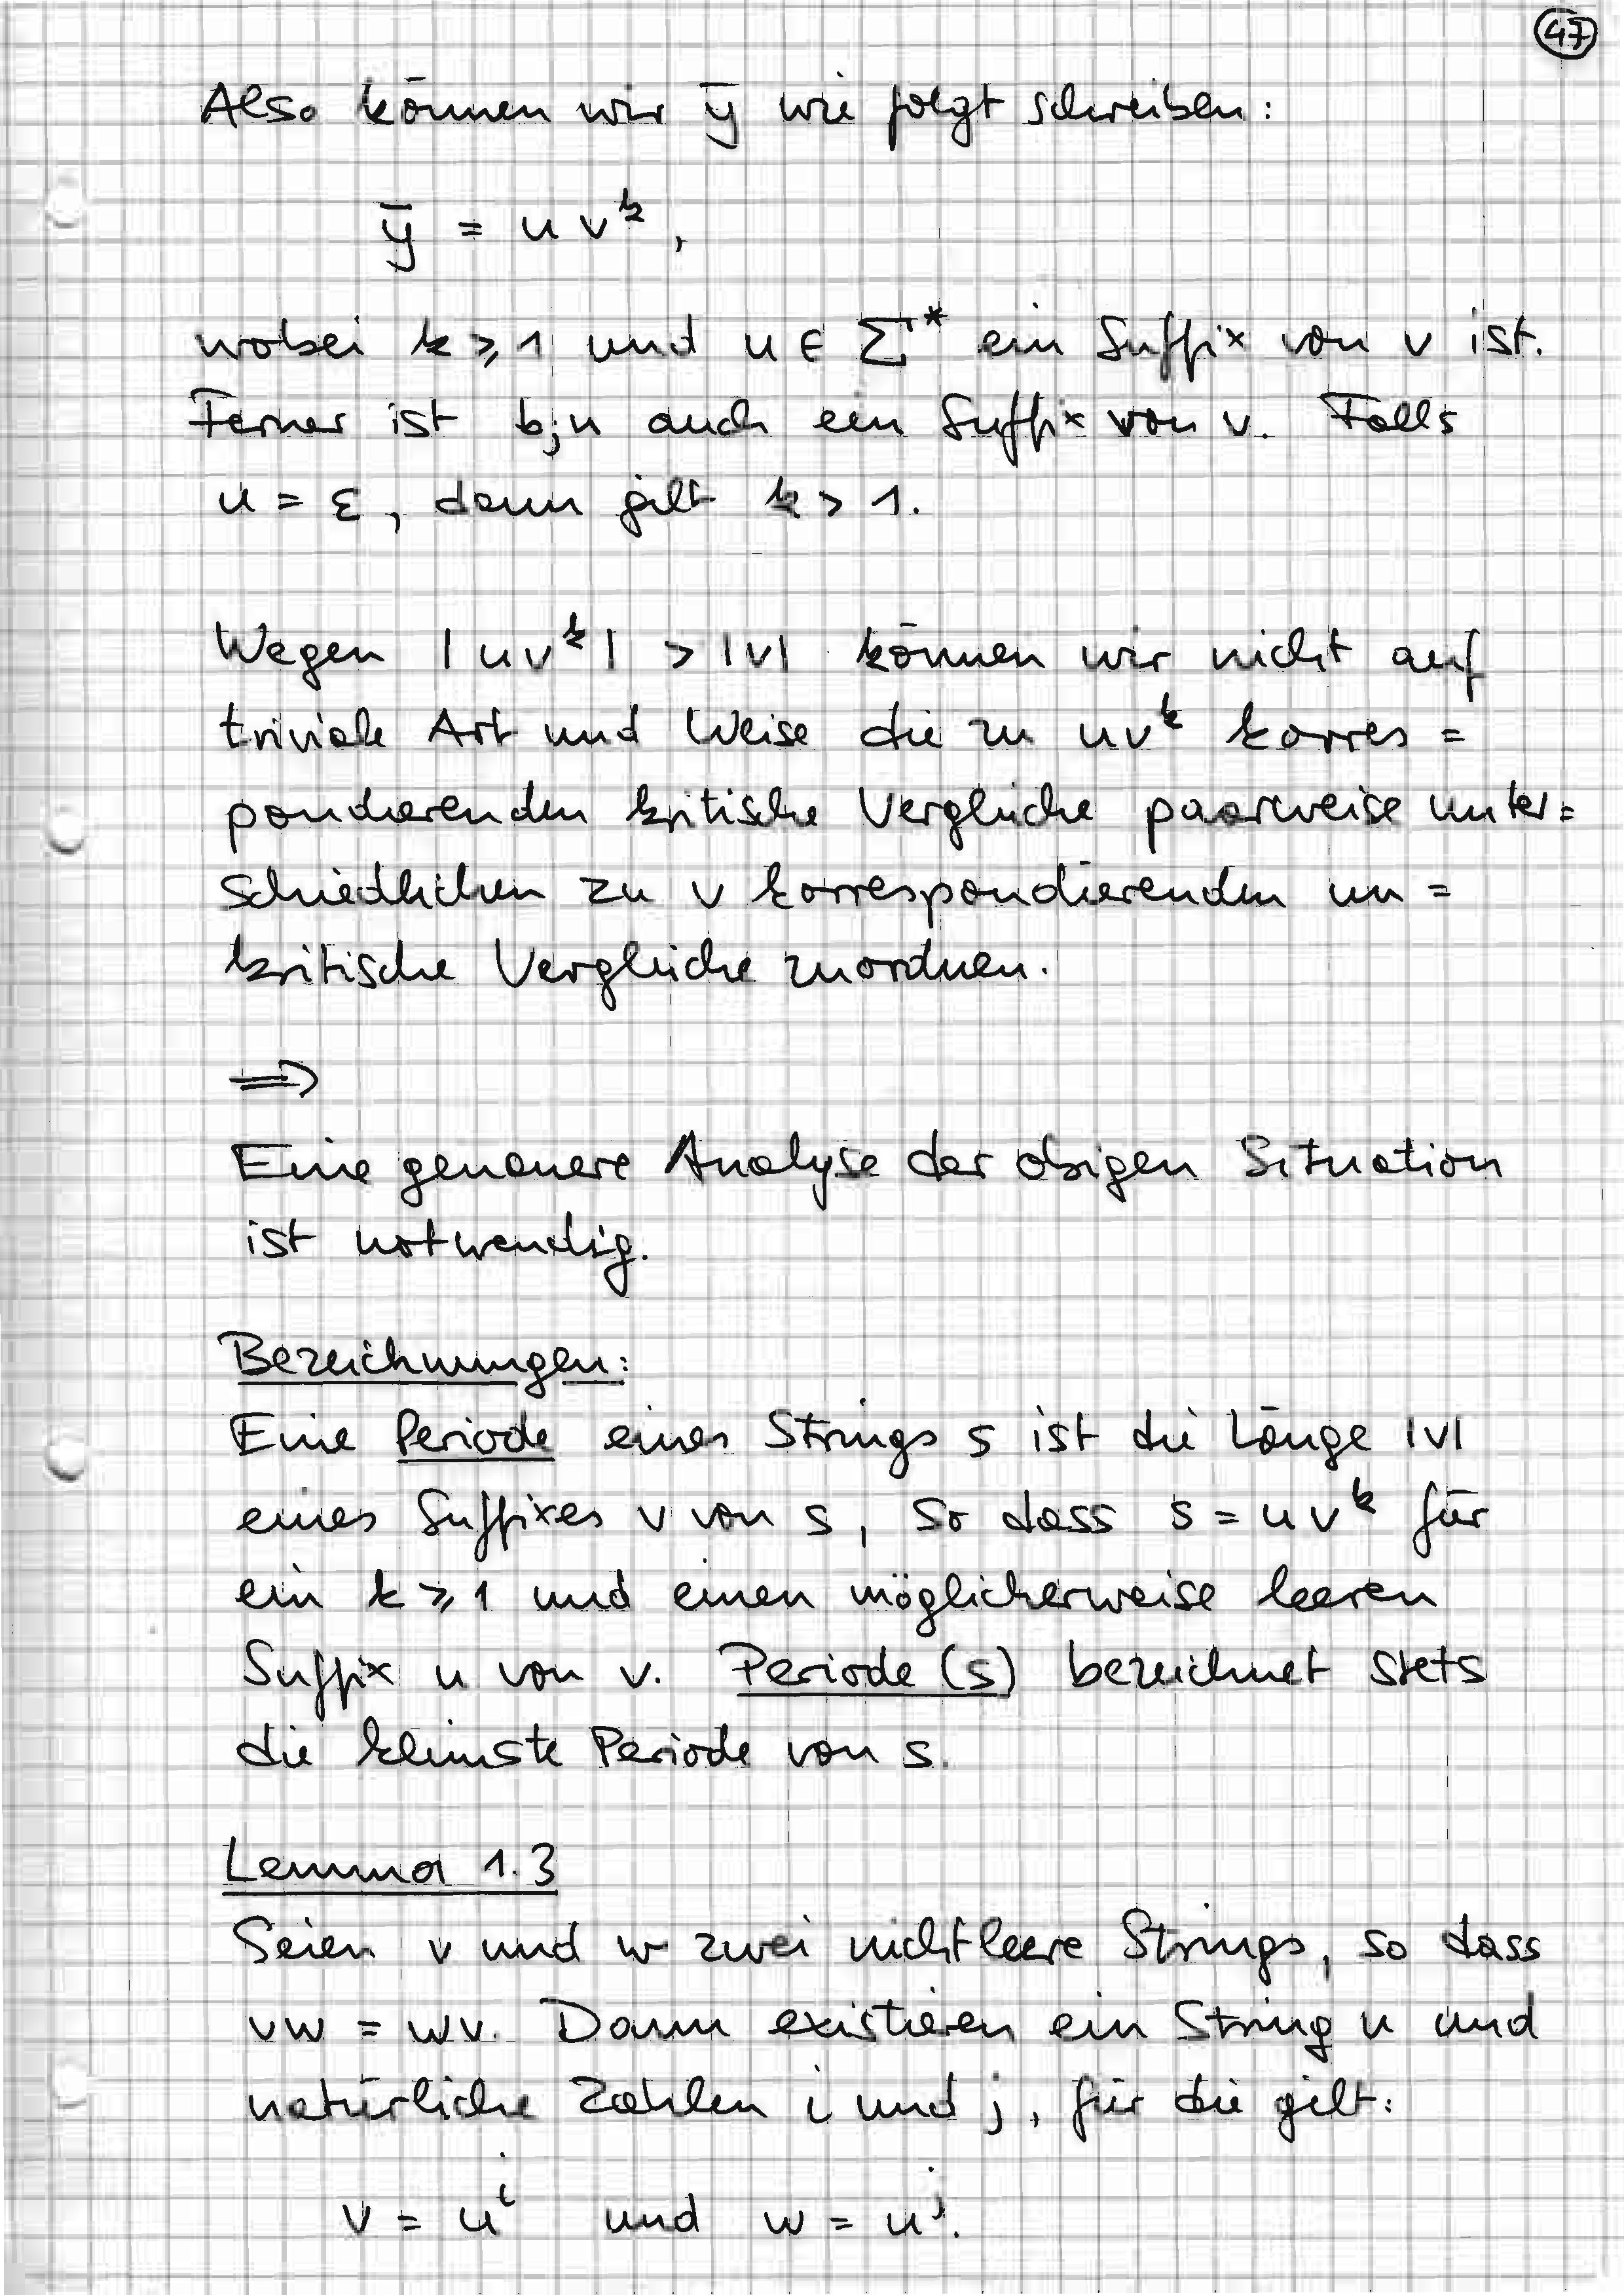 47
Also können wir ȳ wie folgt schreiben:
ȳ = u v^k,
wobei k ≥ 1 und u ∈ Σ* ein Suffix von v ist.
Ferner ist bⱼu auch ein Suffix von v. Falls
u = ε, dann gilt k > 1.
Wegen |uv^k| > |v| können wir nicht auf
triviale Art und Weise die zu uv^k korres=
pondierenden kritische Vergleiche paarweise unter=
schiedlichen zu v korrespondierenden un=
kritische Vergleiche zuordnen.
⟹
Eine genauere Analyse der obigen Situation
ist notwendig.
Bezeichnungen:
Eine Periode eines Strings s ist die Länge |v|
eines Suffixes v von s, so dass s = uv^k für
ein k ≥ 1 und einen möglicherweise leeren
Suffix u von v. Periode (s) bezeichnet stets
die kleinste Periode von s.
Lemma 1.3
Seien v und w zwei nichtleere Strings, so dass
vw = wv. Dann existieren ein String u und
natürliche Zahlen i und j, für die gilt:
v = u^i und w = u^j.